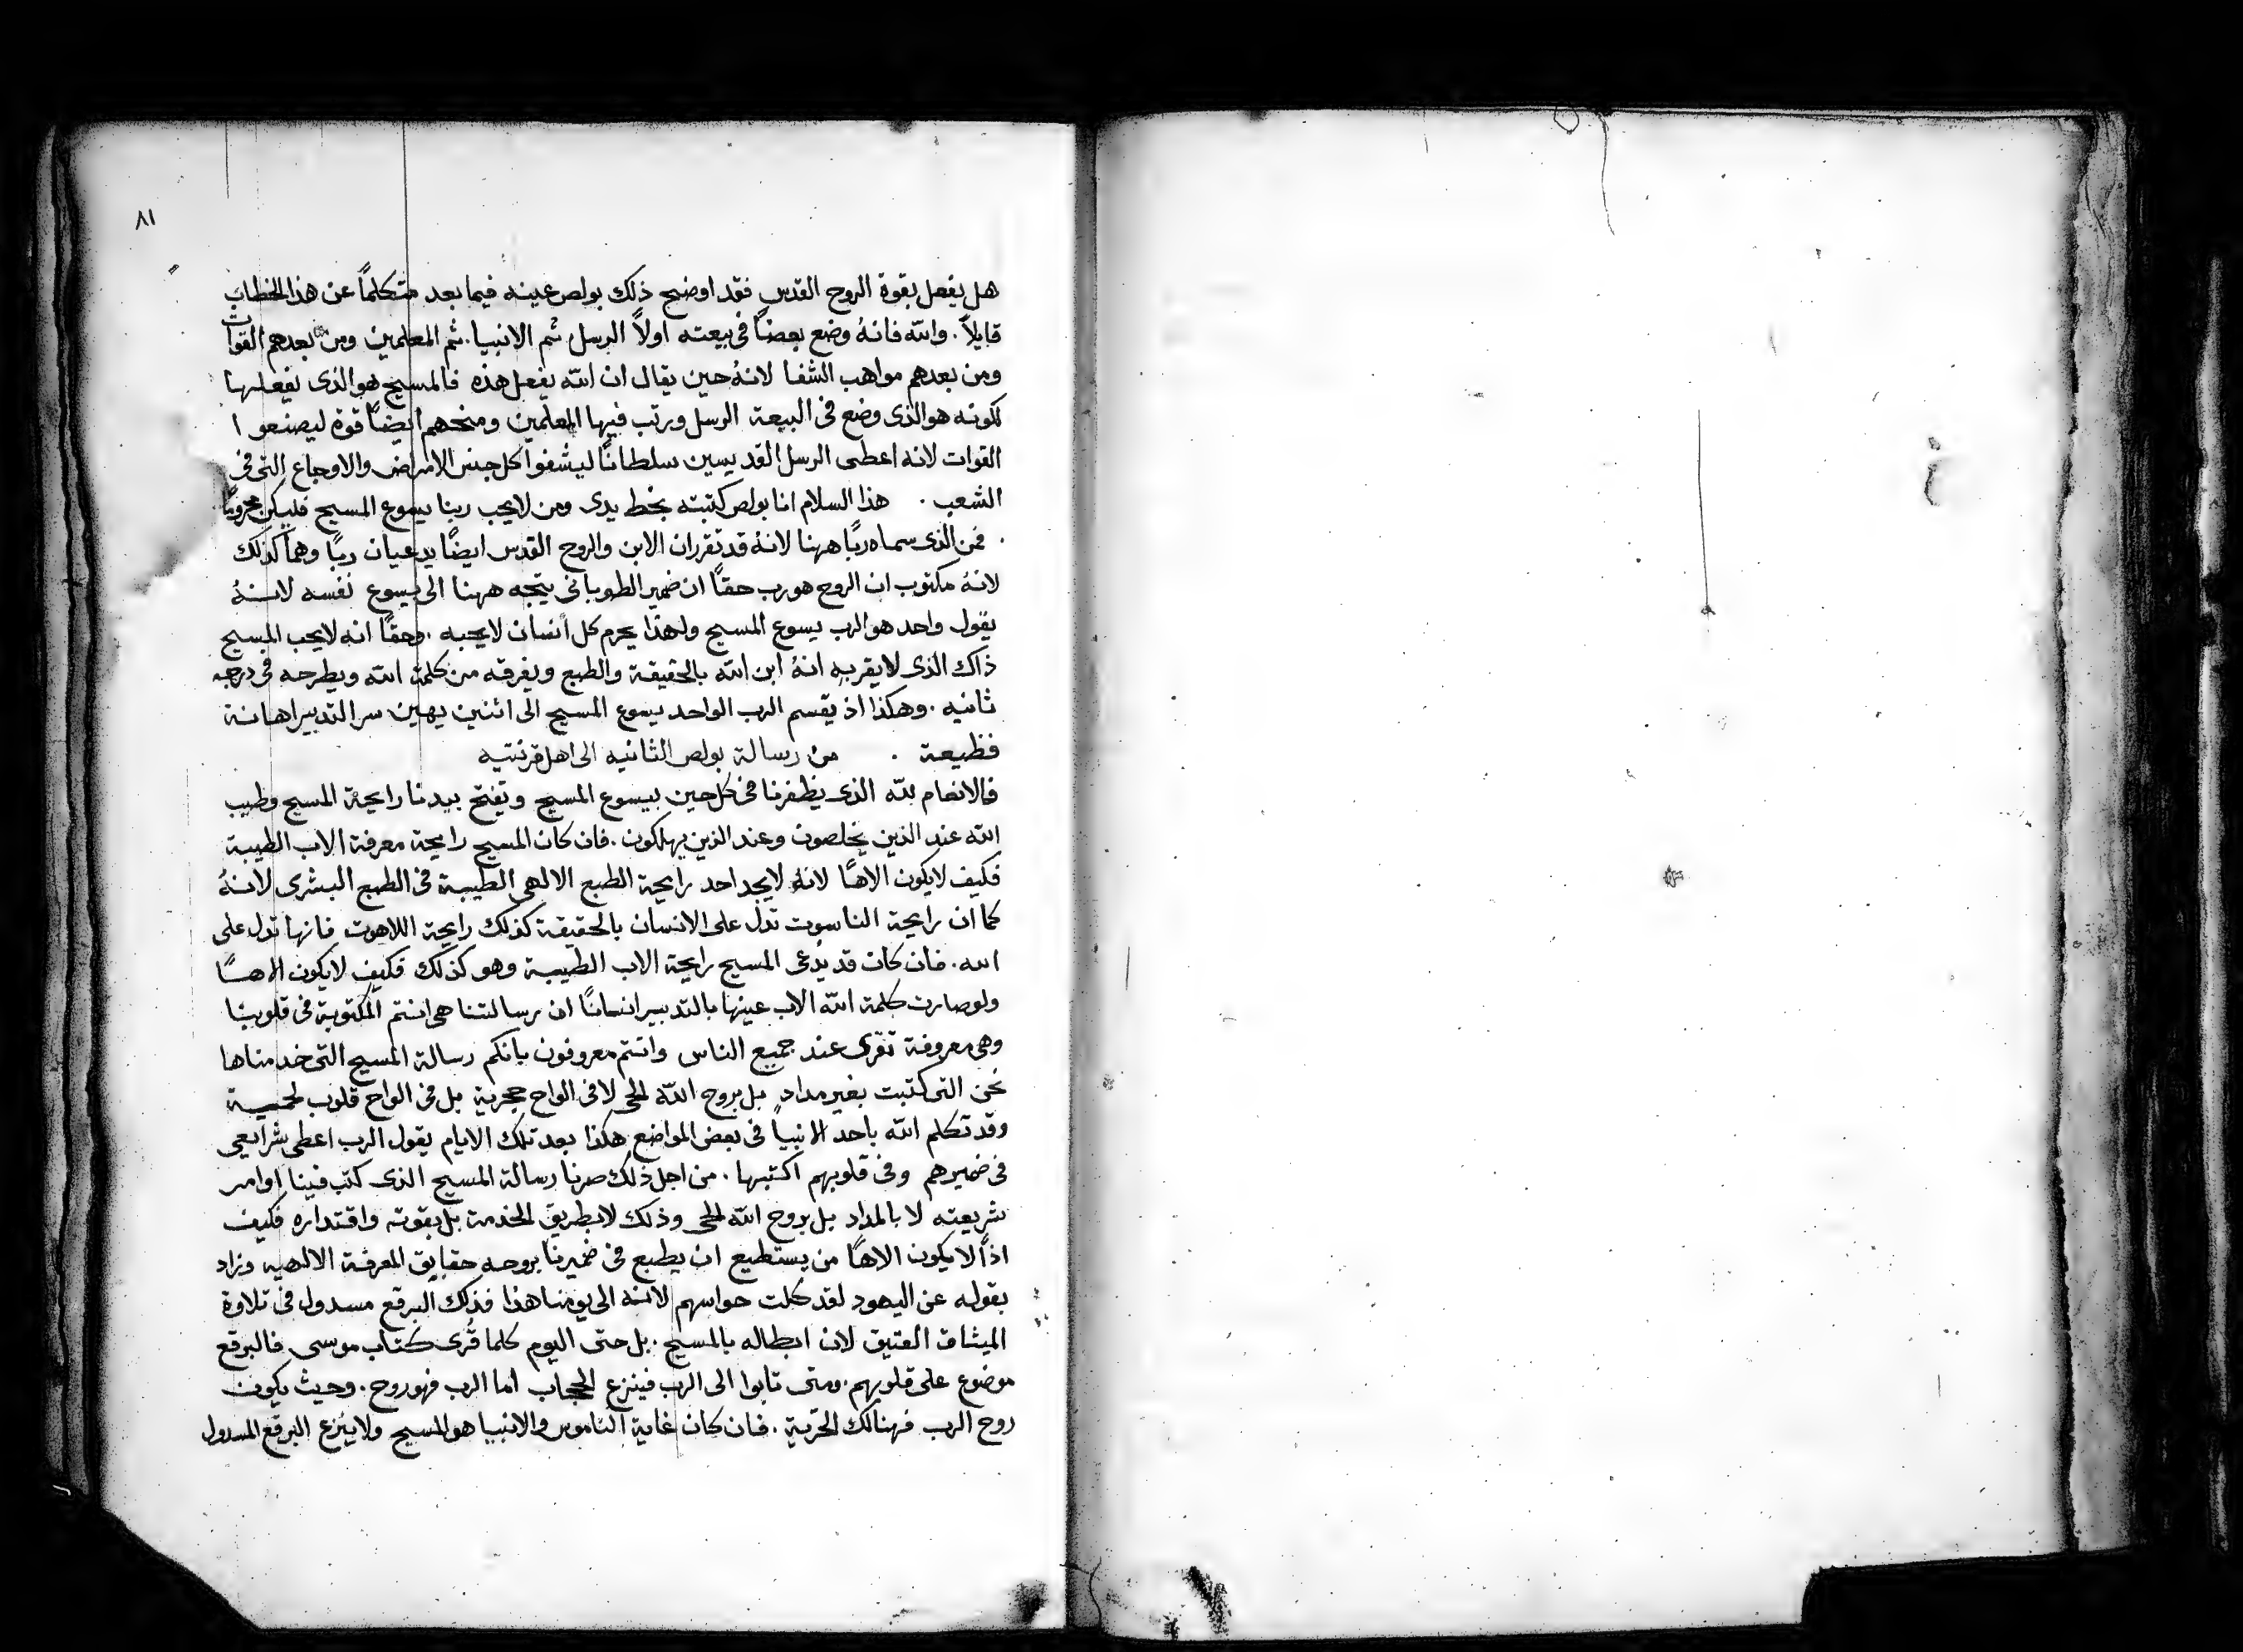 ٨١
هل يفعل بقوة الروح القدس فقد اوضح ذلك بولص عينه فيما بعد متكلماً عن هذا الخطاب
قايلاً . والله فانهُ وضع بعضاً فى بيعته اولاً الرسل ثم الانبيا . ثم المعلمين ومن بعدهم القوات
ومن بعدهم مواهب الشفا لانهُ حين يقال ان الله يفعل هذه فالمسيح هو الذى يفعلها
لكونه هو الذى وضع فى البيعة الرسل ورتب فيها المعلمين ومنحهم ايضاً قوة ليصنعوا
القوات لانه اعطى الرسل القديسين سلطاناً ليشفوا كل جنس الامراض والاوجاع التى فى
الشعب . هذا السلام انا بولص كتبته بخط يدى ومن لا يحب ربنا يسوع المسيح فليكن محروماً
. فمن الذى سماه رباً ههنا لانهُ قد تقرر ان الابن والروح القدس ايضاً يدعيان رباً وهما كذلك
لانهُ مكتوب ان الروح هو رب حقاً ان ضمير الطوبانى يتجه ههنا الى يسوع نفسه لانهُ
يقول واحد هو الرب يسوع المسيح ولهذا يحرم كل انسان لا يحبه . وحقاً انه لا يحب المسيح
ذاك الذى لا يقر به انهُ ابن الله بالحقيقة والطبع ويفرقه من كلمة الله ويطرحه فى درجه
ثانيه . وهكذا اذ يقسم الرب الواحد يسوع المسيح الى اثنين يهين سر التدبير اهانة
فظيعة . من رسالة بولص الثانيه الى اهل قرنتيه
فالانعام لله الذى يظفرنا فى كل حين بيسوع المسيح ويفتح بيدنا رايحة المسيح وطيب
الله عند الذين يخلصون وعند الذين يهلكون . فان كان المسيح رايحة معرفة الاب الطيبة
فكيف لا يكون الاهاً لانهُ لا يجد احد رايحة الطبع الالهى الطيبة فى الطبع البشرى لانهُ
كما ان رايحة الناسوت تدل على الانسان بالحقيقة كذلك رايحة اللاهوت فانها تدل على
الله . فان كان قد يدعى المسيح رايحة الاب الطيبة وهو كذلك فكيف لا يكون الاهاً
ولو صارت كلمة الله الاب عينها بالتدبير انساناً ان رسالتنا هى انتم المكتوبة فى قلوبنا
وهى معروفة تقرى عند جميع الناس وانتم معروفون بانكم رسالة المسيح التى خدمناها
نحن التى كتبت بغير مداد بل بروح الله الحى لا فى الواح حجرية بل فى الواح قلوب لحمية
وقد تكلم الله باحد الانبيا فى بعض المواضع هكذا بعد تلك الايام يقول الرب اعطى شرايعى
فى ضميرهم وفى قلوبهم اكتبها . من اجل ذلك صرنا رسالة المسيح الذى كتب فينا اوامر
شريعته لا بالمداد بل بروح الله الحى وذلك لا بطريق الخدمة بل بقوته واقتداره فكيف
اذاً لا يكون الاهاً من يستطيع ان يطبع فى ضميرنا بروحه حقايق المعرفة الالهيه وزاد
بقوله عن اليهود لقد كلت حواسهم لانه الى يومنا هذا فذلك البرقع مسدول فى تلاوة
الميثاق العتيق لان ابطاله بالمسيح . بل حتى اليوم كلما قُرى كتاب موسى فالبرقع
موضوع على قلوبهم . ومتى تابوا الى الرب فينزع الحجاب اما الرب فهو روح . وحيث يكون
روح الرب فهنالك الحرّية . فان كان غاية الناموس والانبيا هو المسيح ولا ينزع البرقع المسدول